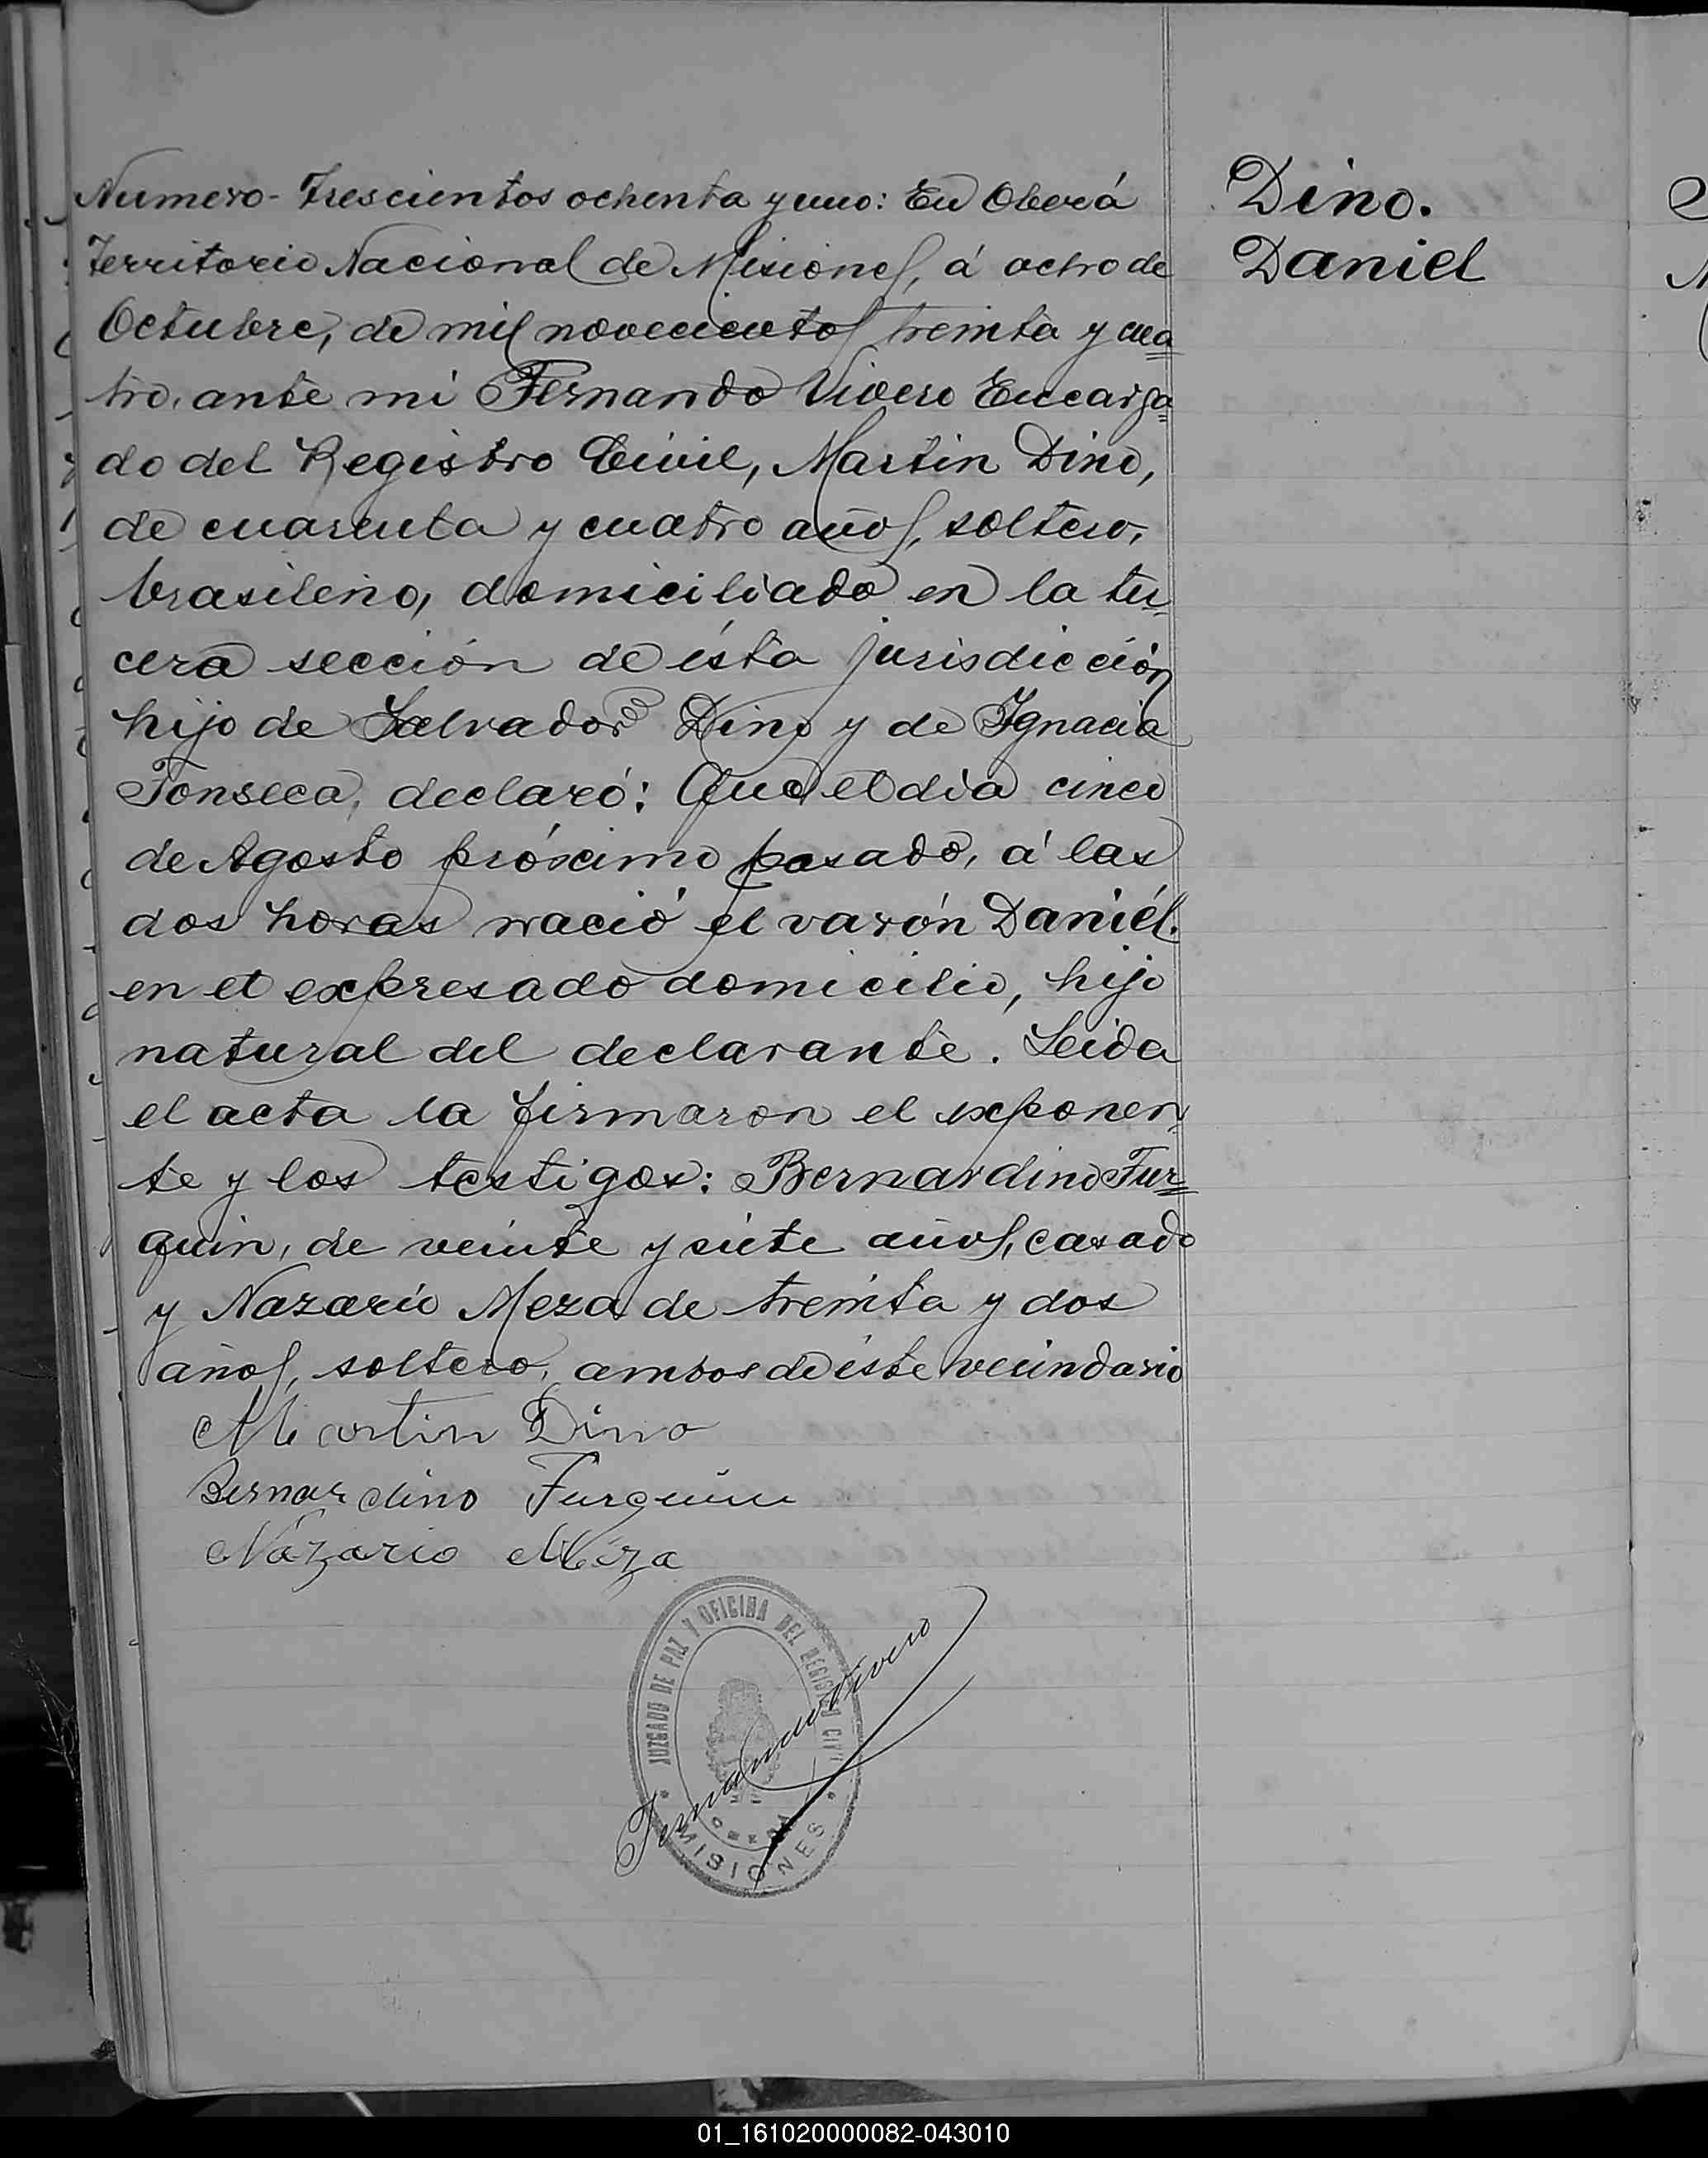 Numero - Trescientos ochenta y uno: En Oberá
Territorio Nacional de Misiones, á ocho de
Octubre, de mil novecientos treinta y cua=
tro, ante mi Fernando Vivero Encarga=
do del Registro Civil, Martin Dino,
de cuarenta y cuatro años, soltero,
brasileno, domiciliado en la ter=
cera sección de ésta jurisdicción
hijo de Salvador Dino y de Ignacia
Fonseca, declaró: Que el dia cinco
de Agosto próximo pasado, á las
dos horas nació el varón Daniél.
en el expresado domicilio, hijo
natural del declarante. Leida
el acta la firmaron el exponen
te y los testigos: Bernardino Fur=
quin, de veinte y siete años, casado
y Nazario Meza de treinta y dos
años, soltero, ambos de éste vecindario
Martin Dino
Bernardino Furquin
Nazario Meza
JUZGADO DE PAZ Y OFICINA DEL REGISTRO CIVIL
Fernando Vivero
OBERA
MISIONES
Dino.
Daniel
01_161020000082-043010